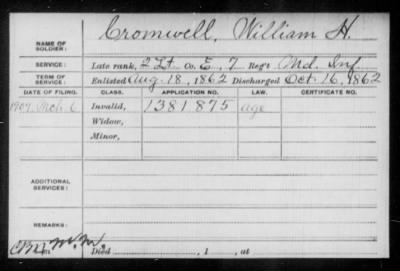 Cromwell, William H.
NAME OF SOLDIER:
SERVICE: Late rank, 2 Lt. Co. E, 7 Reg't Md. Inf
TERM OF SERVICE: Enlisted Aug. 18, 1862 Discharged Oct. 16, 1862
DATE OF FILING. CLASS. APPLICATION NO. LAW. CERTIFICATE NO.
1907 Mch 6 Invalid, 1381875 age
Widow,
Minor,
ADDITIONAL SERVICES:
REMARKS:
Died , 1 , at